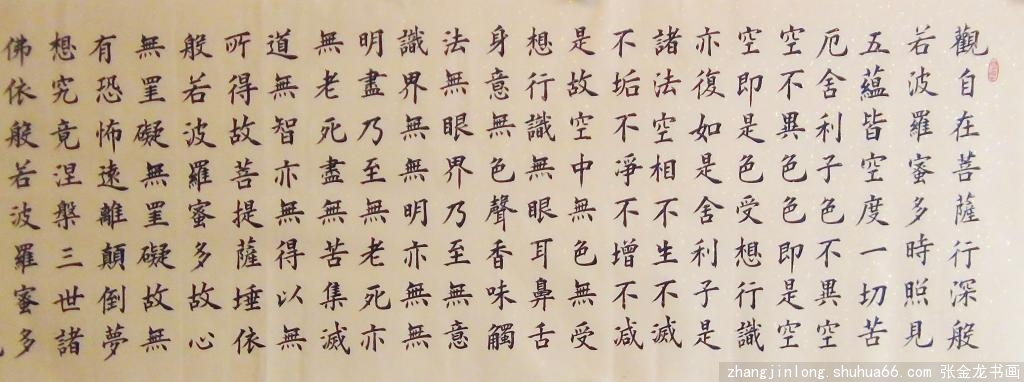 觀自在菩薩行深般
若波羅蜜多時照見
五蘊皆空度一切苦
厄舍利子色不異空
空不異色色即是空
空即是色受想行識
亦復如是舍利子是
諸法空相不生不滅
不垢不淨不增不减
是故空中無色無受
想行識無眼耳鼻舌
身意無色聲香味觸
法無眼界乃至無意
識界無無明亦無無
明盡乃至無老死亦
無老死盡無苦集滅
道無智亦無得以無
所得故菩提薩埵依
般若波羅蜜多故心
無罣礙無罣礙故無
有恐怖遠離顛倒夢
想究竟涅槃三世諸
佛依般若波羅蜜多
zhangjinlong.shuhua66.com 张金龙书画